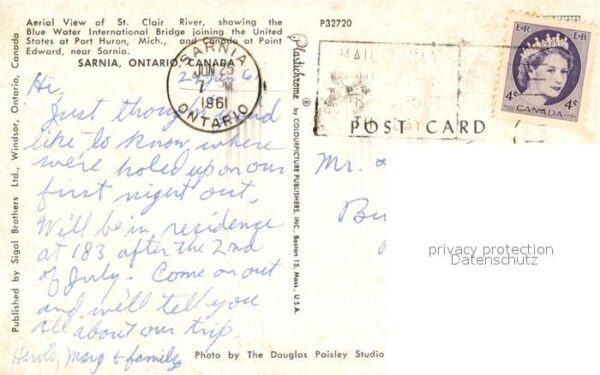 Aerial View of St. Clair River, showing the
Blue Water International Bridge joining the United
States at Port Huron, Mich., and Canada at Point
Edward, near Sarnia.
SARNIA, ONTARIO, CANADA
P32720
SARNIA
JUN 26
1961
ONTARIO
Hi,
Just thought you'd
like to know where
we're holed up on our
first night out.
Will be in residence
at 183 after the 2nd
of July. Come on out
and we'll tell you
all about our trip.
Harold, Marg & family
Photo by The Douglas Paisley Studio
Published by Sigal Brothers Ltd., Windsor, Ontario, Canada
Plastichrome ® by COLOURPICTURE PUBLISHERS, INC. Boston 15, Mass., U.S.A.
POST CARD
E II R E II R
4¢ 4¢
CANADA
Mr.
privacy protection
Datenschutz